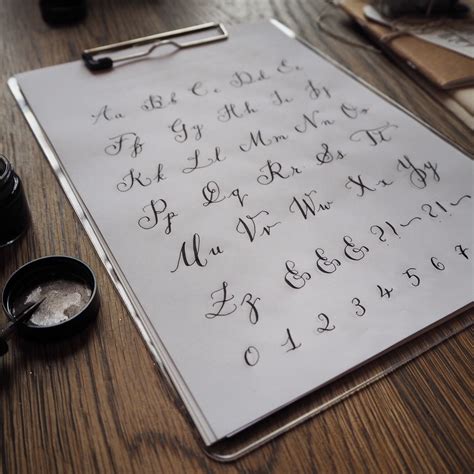 Aa Bb Cc Dd Ee
Ff Gg Hh Ii Jj
Kk Ll Mm Nn Oo
Pp Qq Rr Ss Tt
Uu Vv Ww Xx Yy
Zz & & & ?!~ ?!~
0 1 2 3 4 5 6 7